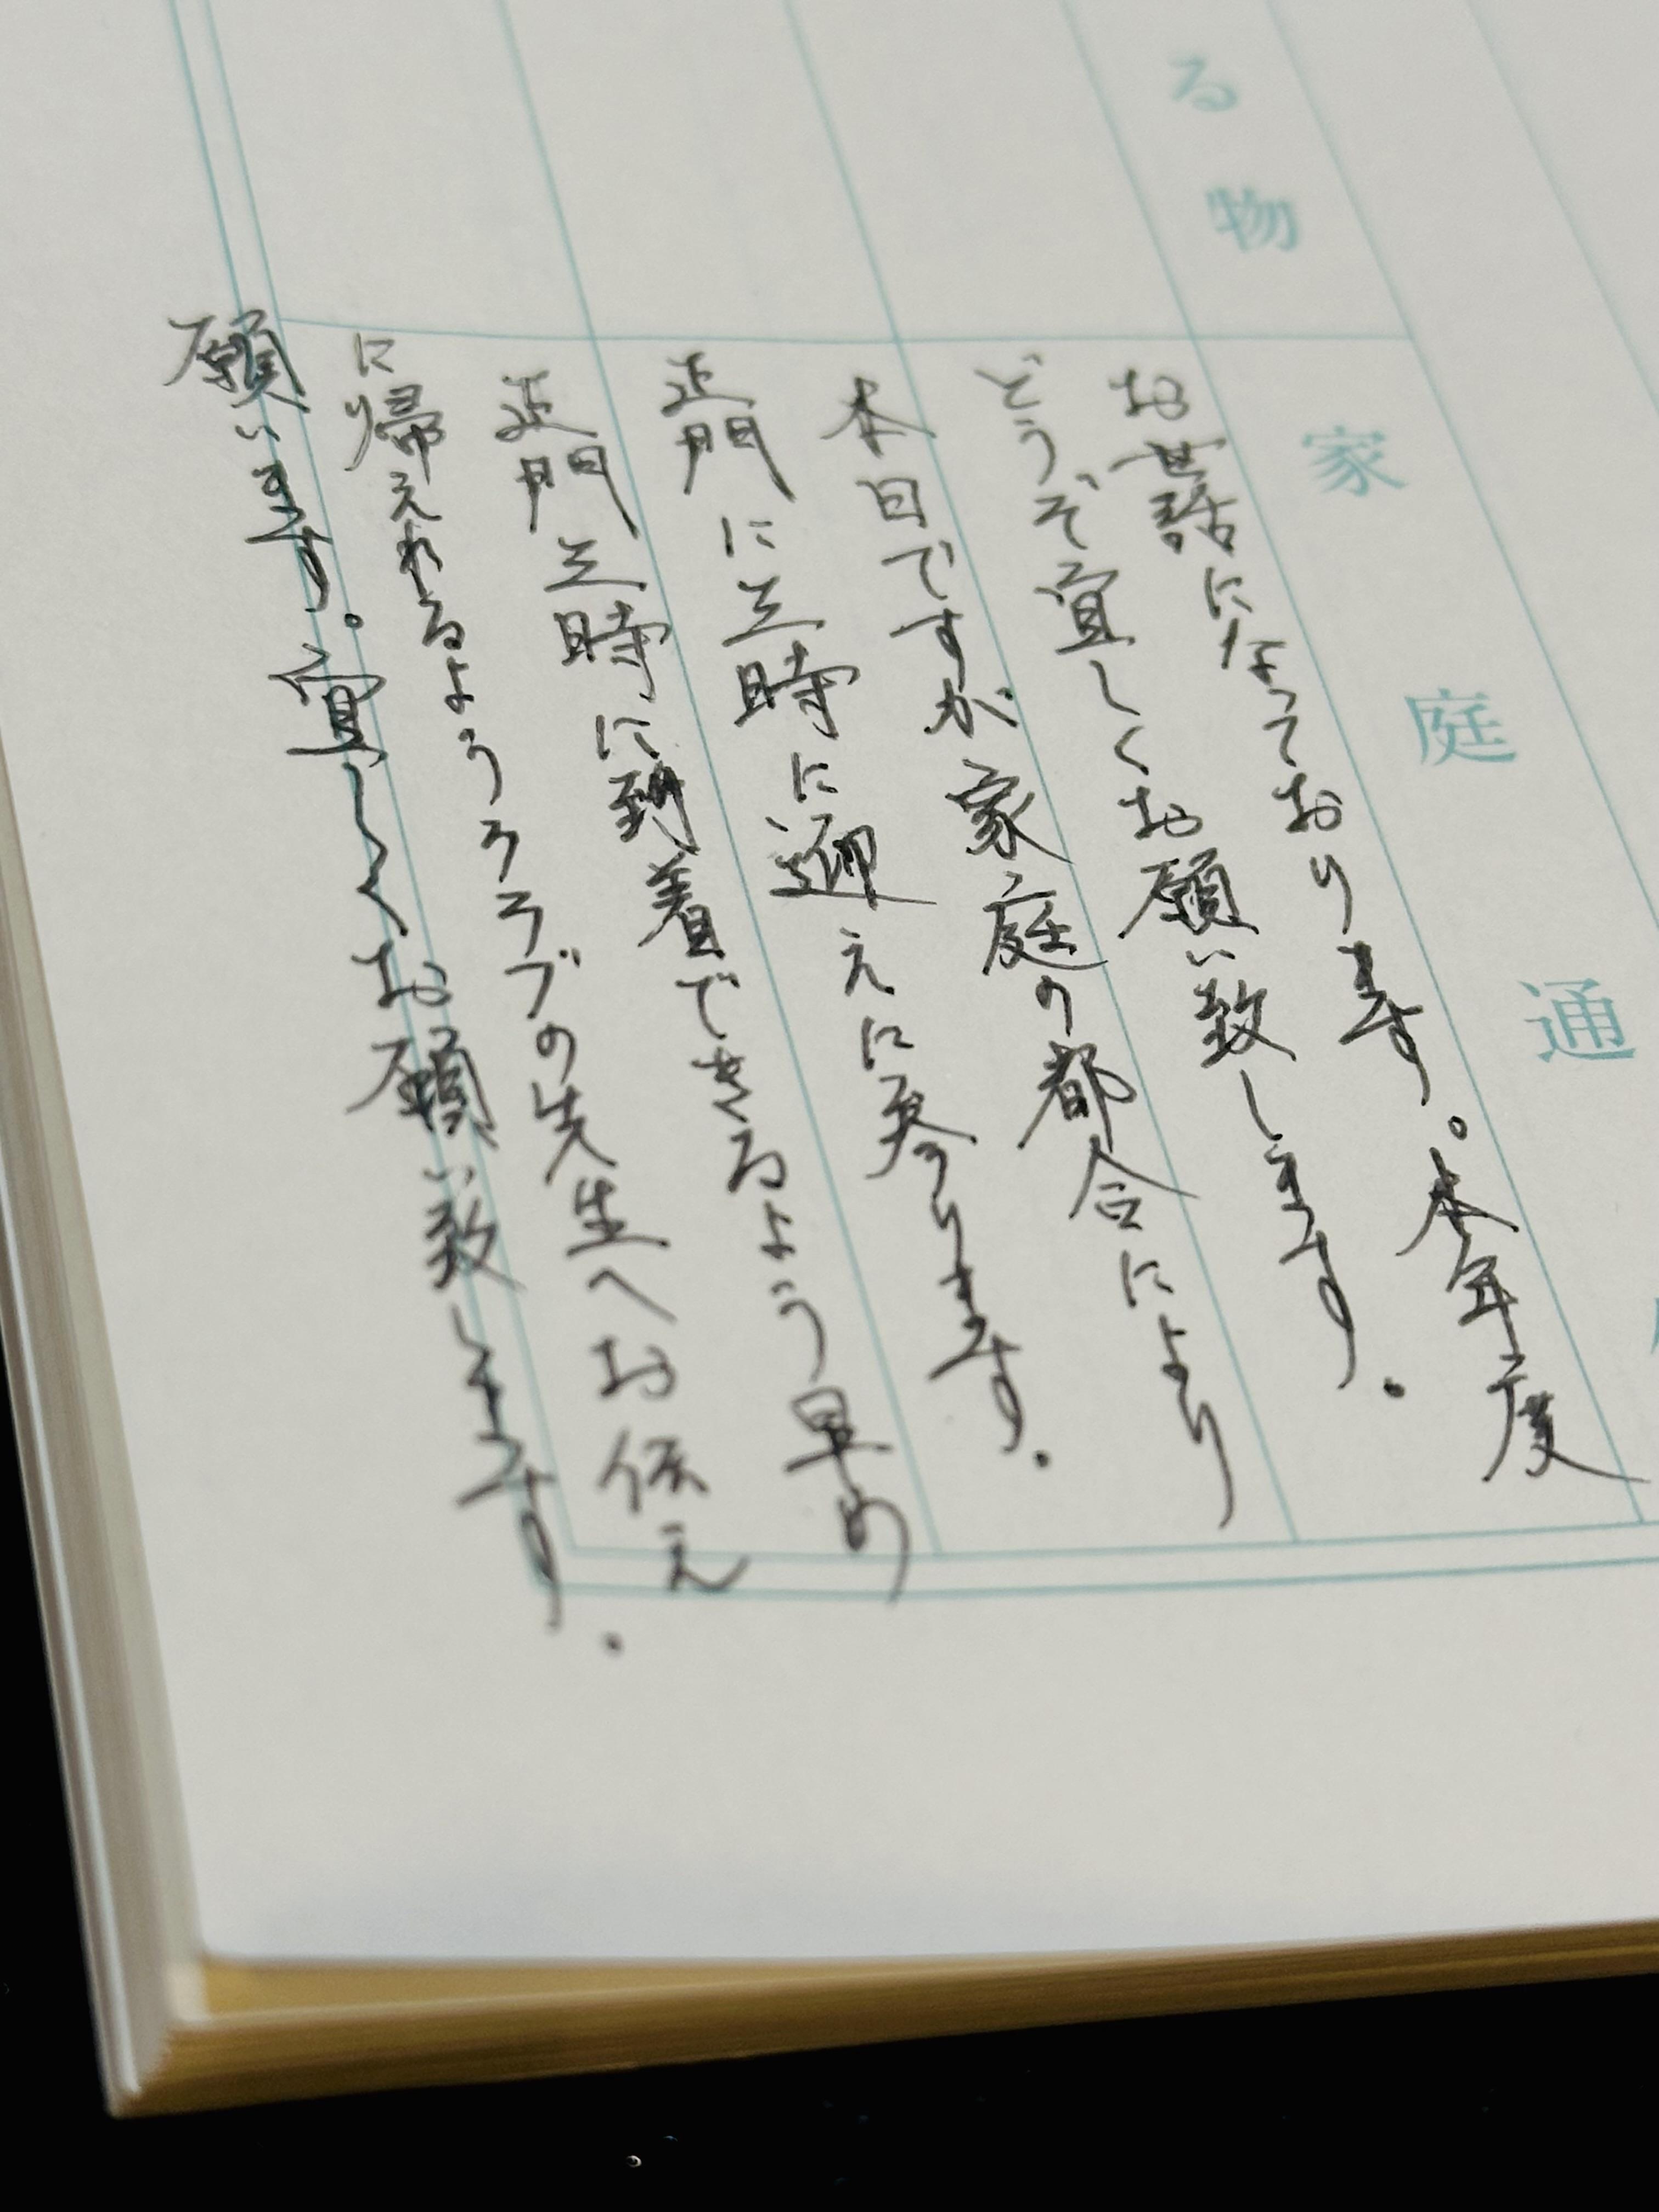 る物
家庭通
お世話になっております。本年度
どうぞ宜しくお願い致します。
本日ですが家庭の都合により
正門に三時に迎えに参ります。
正門三時に到着できるよう早め
に帰えれるようクラブの先生へお伝え
願います。宜しくお願い致します。